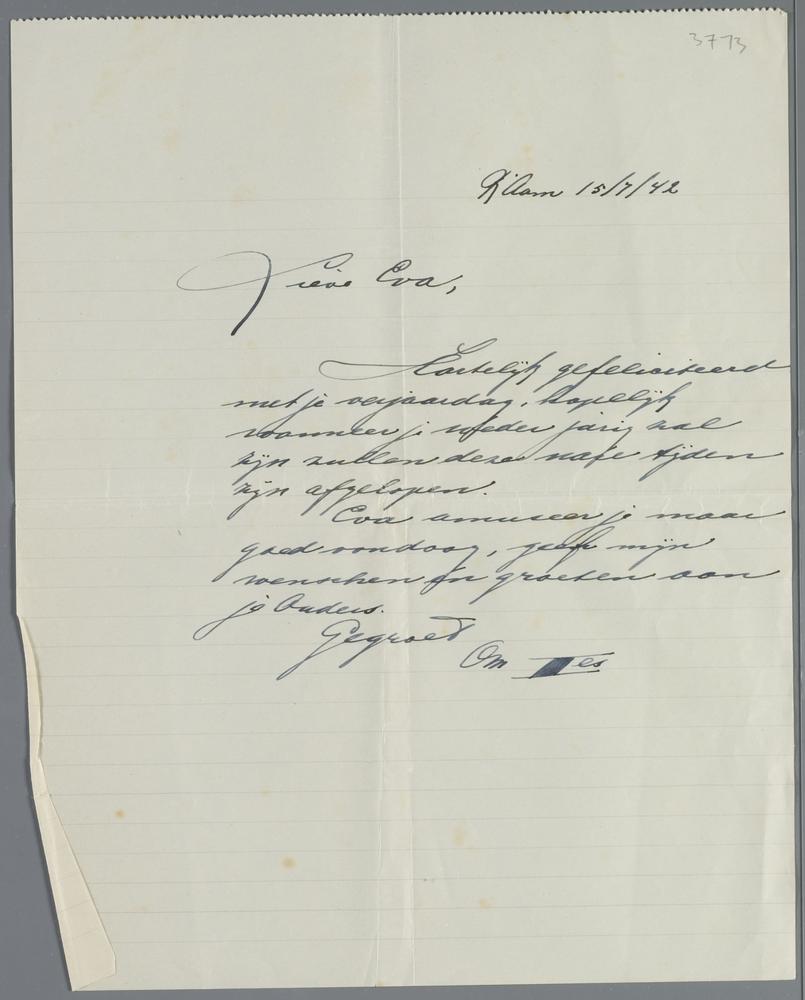 3773
R'dam 15/7/42
Lieve Eva,
Hartelijk gefeliciteerd
met je verjaardag, hopelijk
wanneer je weder jarig zal
zijn zullen deze nare tijden
zijn afgelopen.
Eva amuseer je maar
goed vandaag, geef mijn
wenschen en groeten aan
je Ouders.
Gegroet
Om